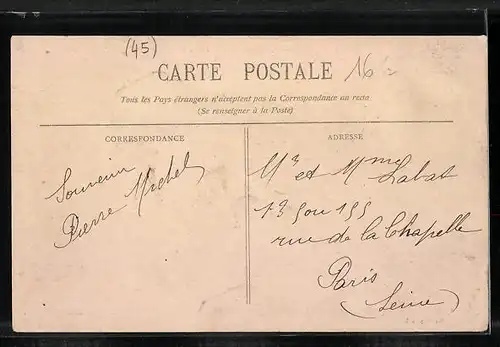 (45)
CARTE POSTALE
16
Tous les Pays étrangers n'acceptent pas la Correspondance au recto
(Se renseigner à la Poste)
CORRESPONDANCE
ADRESSE
Souvenir
Pierre Michel
Mr et Mme Labat
13 ou 155
rue de la Chapelle
Paris
(Seine)